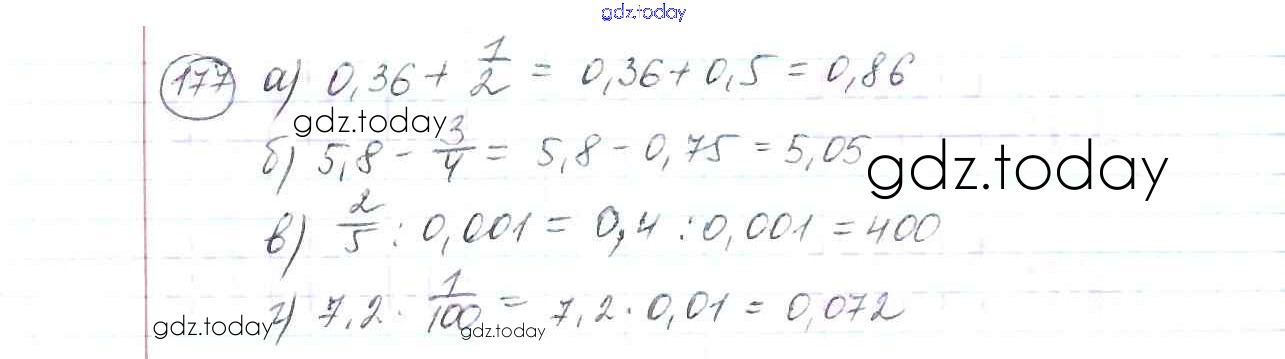 gdz.today
177 а) 0,36 + 1/2 = 0,36 + 0,5 = 0,86
gdz.today
б) 5,8 - 3/4 = 5,8 - 0,75 = 5,05
gdz.today
в) 2/5 : 0,001 = 0,4 : 0,001 = 400
г) 7,2 · 1/100 = 7,2 · 0,01 = 0,072
gdz.today
gdz.today